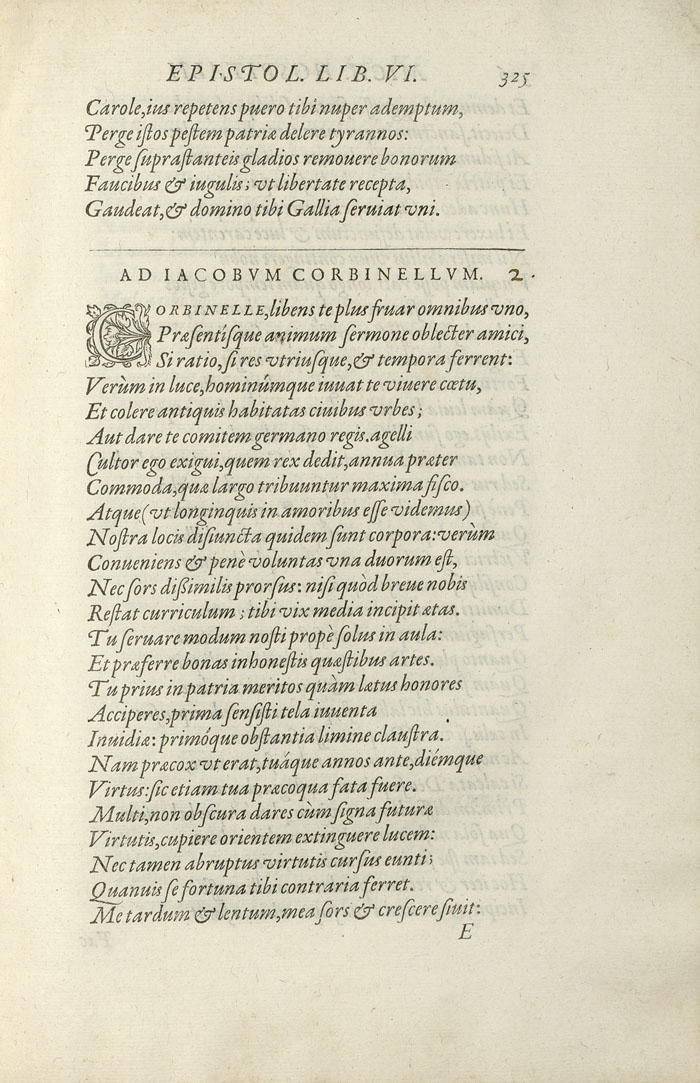 EPISTOL. LIB. VI. 325
Carole,ius repetens puero tibi nuper ademptum,
Perge iſtos peſtem patriæ delere tyrannos:
Perge ſupraſtanteis gladios remouere bonorum
Faucibus & iugulis; vt libertate recepta,
Gaudeat,& domino tibi Gallia ſeruiat vni.
AD IACOBVM CORBINELLVM. 2.
CORBINELLE,libens te plus fruar omnibus vno,
Præſentiſque animum ſermone oblecter amici,
Si ratio, ſi res vtriuſque,& tempora ferrent:
Verùm in luce,hominúmque iuuat te viuere cœtu,
Et colere antiquis habitatas ciuibus vrbes;
Aut dare te comitem germano regis.agelli
Cultor ego exigui,quem rex dedit,annua præter
Commoda,quæ largo tribuuntur maxima fiſco.
Atque(vt longinquis in amoribus eſſe videmus)
Noſtra locis diſiuncta quidem ſunt corpora:verùm
Conueniens & penè voluntas vna duorum eſt,
Nec ſors dißimilis prorſus: niſi quòd breue nobis
Reſtat curriculum ; tibi vix media incipit ætas.
Tu ſeruare modum noſti propè ſolus in aula:
Et præferre bonas inhoneſtis quæſtibus artes.
Tu prius in patria meritos quàm lætus honores
Acciperes,prima ſenſiſti tela iuuenta
Inuidiæ: primóque obſtantia limine clauſtra.
Nam præcox vt erat,tuáque annos ante,diémque
Virtus:ſic etiam tua præcoqua fata fuere.
Multi,non obſcura dares cùm ſigna futuræ
Virtutis,cupiere orientem extinguere lucem:
Nec tamen abruptus virtutis curſus eunti;
Quanuis ſe fortuna tibi contraria ferret.
Me tardum & lentum,mea ſors & creſcere ſiuit:
E